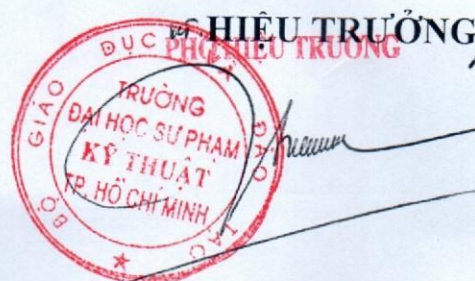 HIỆU TRƯỞNG
PHÓ HIỆU TRƯỞNG
BỘ GIÁO DỤC VÀ ĐÀO TẠO
TRƯỜNG
ĐẠI HỌC SƯ PHẠM
KỸ THUẬT
TP. HỒ CHÍ MINH